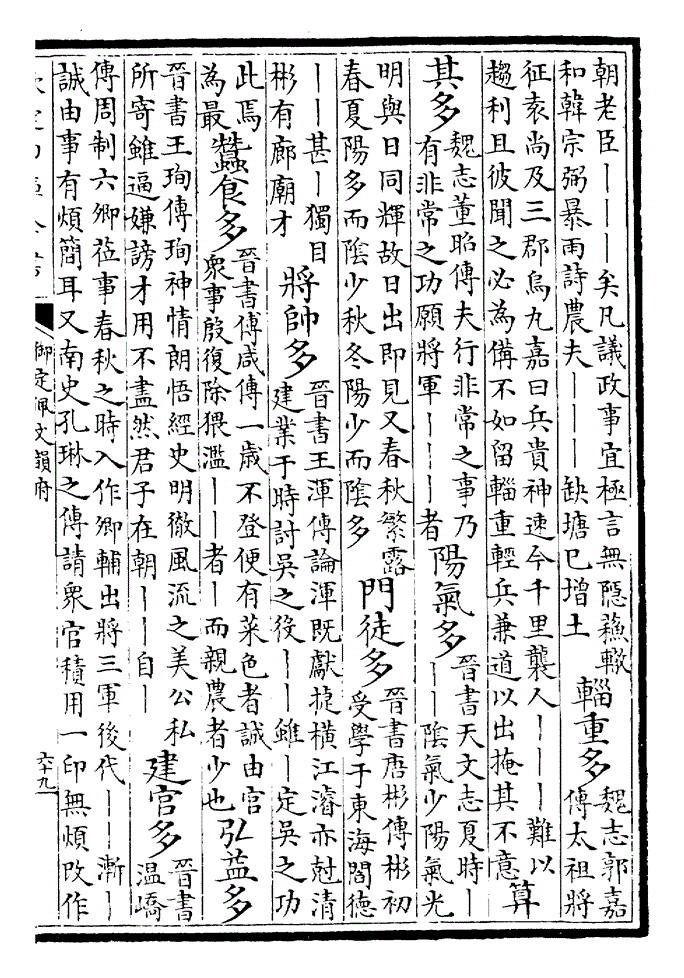 朝老臣丨丨丨矣凡議政事宜極言無隱蘓轍
和韓宗弼暴雨詩農夫丨丨丨缺塘已增土
輜重多
魏志郭嘉
傳太祖將
征袁尚及三郡烏九嘉曰兵貴神速今千里襲人丨丨丨難以
趨利且彼聞之必為備不如留輜重輕兵兼道以出掩其不意
算
其多
魏志董昭傳夫行非常之事乃
有非常之功願將軍丨丨丨者
陽氣多
晉書天文志夏時丨
丨丨陰氣少陽氣光
明與日同輝故日出即見又春秋繁露
春夏陽多而陰少秋冬陽少而陰多
門徒多
晉書唐彬傳彬初
受學于東海閻德
丨丨甚丨獨目
彬有廊廟才
將帥多
晉書王渾傳論渾既獻捷橫江濬亦尅清
建業于時討吳之役丨丨雖丨定吳之功
此焉
為最
蠶食多
晉書傅咸傳一歲不登便有菜色者誠由官
衆事殷復除猥濫丨丨者丨而親農者少也
弘益多
晉書王珣傳珣神情朗悟經史明徹風流之美公私
所寄雖逼嫌謗才用不盡然君子在朝丨丨自丨
建官多
晉書
温嶠
傳周制六卿莅事春秋之時入作卿輔出將三軍後代丨丨漸丨
誠由事有煩簡耳又南史孔琳之傳請衆官積用一印無煩改作
御定佩文韻府
六十九